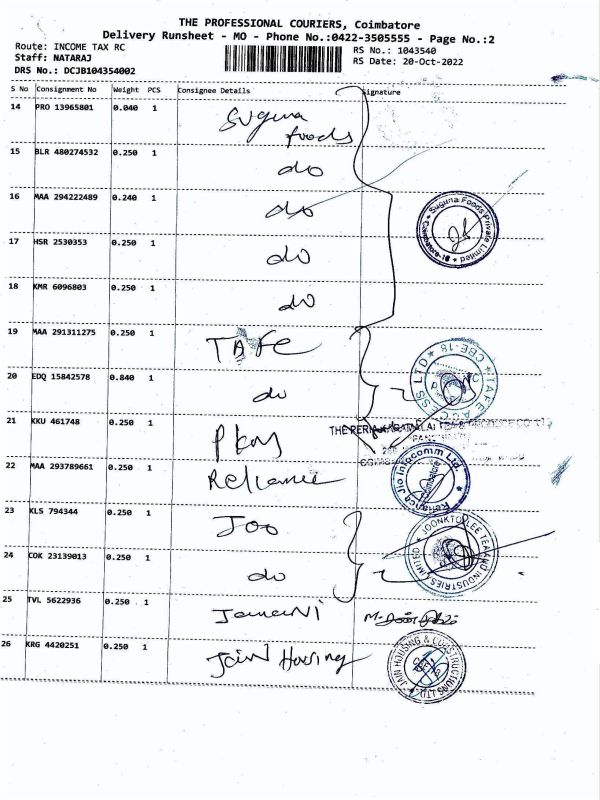 THE PROFESSIONAL COURIERS, Coimbatore
Delivery Runsheet - MO - Phone No.:0422-3505555 - Page No.:2
Route: INCOME TAX RC
RS No.: 1043540
Staff: NATARAJ
RS Date: 20-Oct-2022
DRS No.: DCJB104354002
S No Consignment No Weight PCS Consignee Details Signature
14 PRO 13965801 0.040 1 Suguna foods
15 BLR 480274532 0.250 1 do
16 MAA 294222489 0.240 1 do
Suguna Foods Private Limited
17 HSR 2530353 0.250 1 do
18 KMR 6096803 0.250 1 do
19 MAA 291311275 0.250 1 TAFE
TAFE ACCESS LTD ★ CBE-18 ★
20 EDQ 15842578 0.840 1 do
21 KKU 461748 0.250 1
22 MAA 293789661 0.250 1 Reliance
Reliance Jio Infocomm Ltd.
23 KLS 794344 0.250 1 Joo
JOONKTOLLEE TEA AND INDUSTRIES LIMITED
24 COK 23139013 0.250 1 do
25 TVL 5622936 0.250 1
26 KRG 4420251 0.250 1 Jain Housing
JAIN HOUSING & CONSTRUCTIONS LTD.